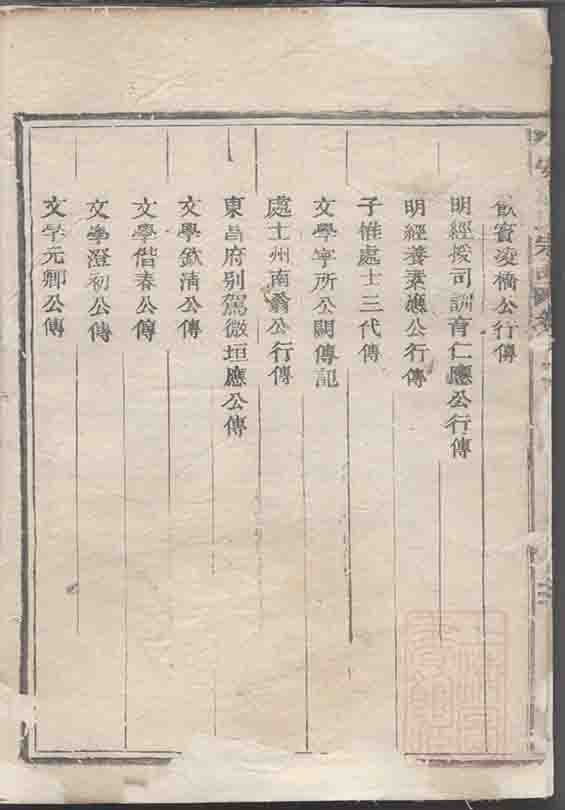 飲賓淩橋公行傳
明經授司訓育仁應公行傳
明經養素應公行傳
子惟處士三代傳
文學寧所公闕傳記
處士州南翁公行傳
東昌府別駕微垣應公傳
文學欽清公傳
文學偕春公傳
文學澄初公傳
文學元卿公傳